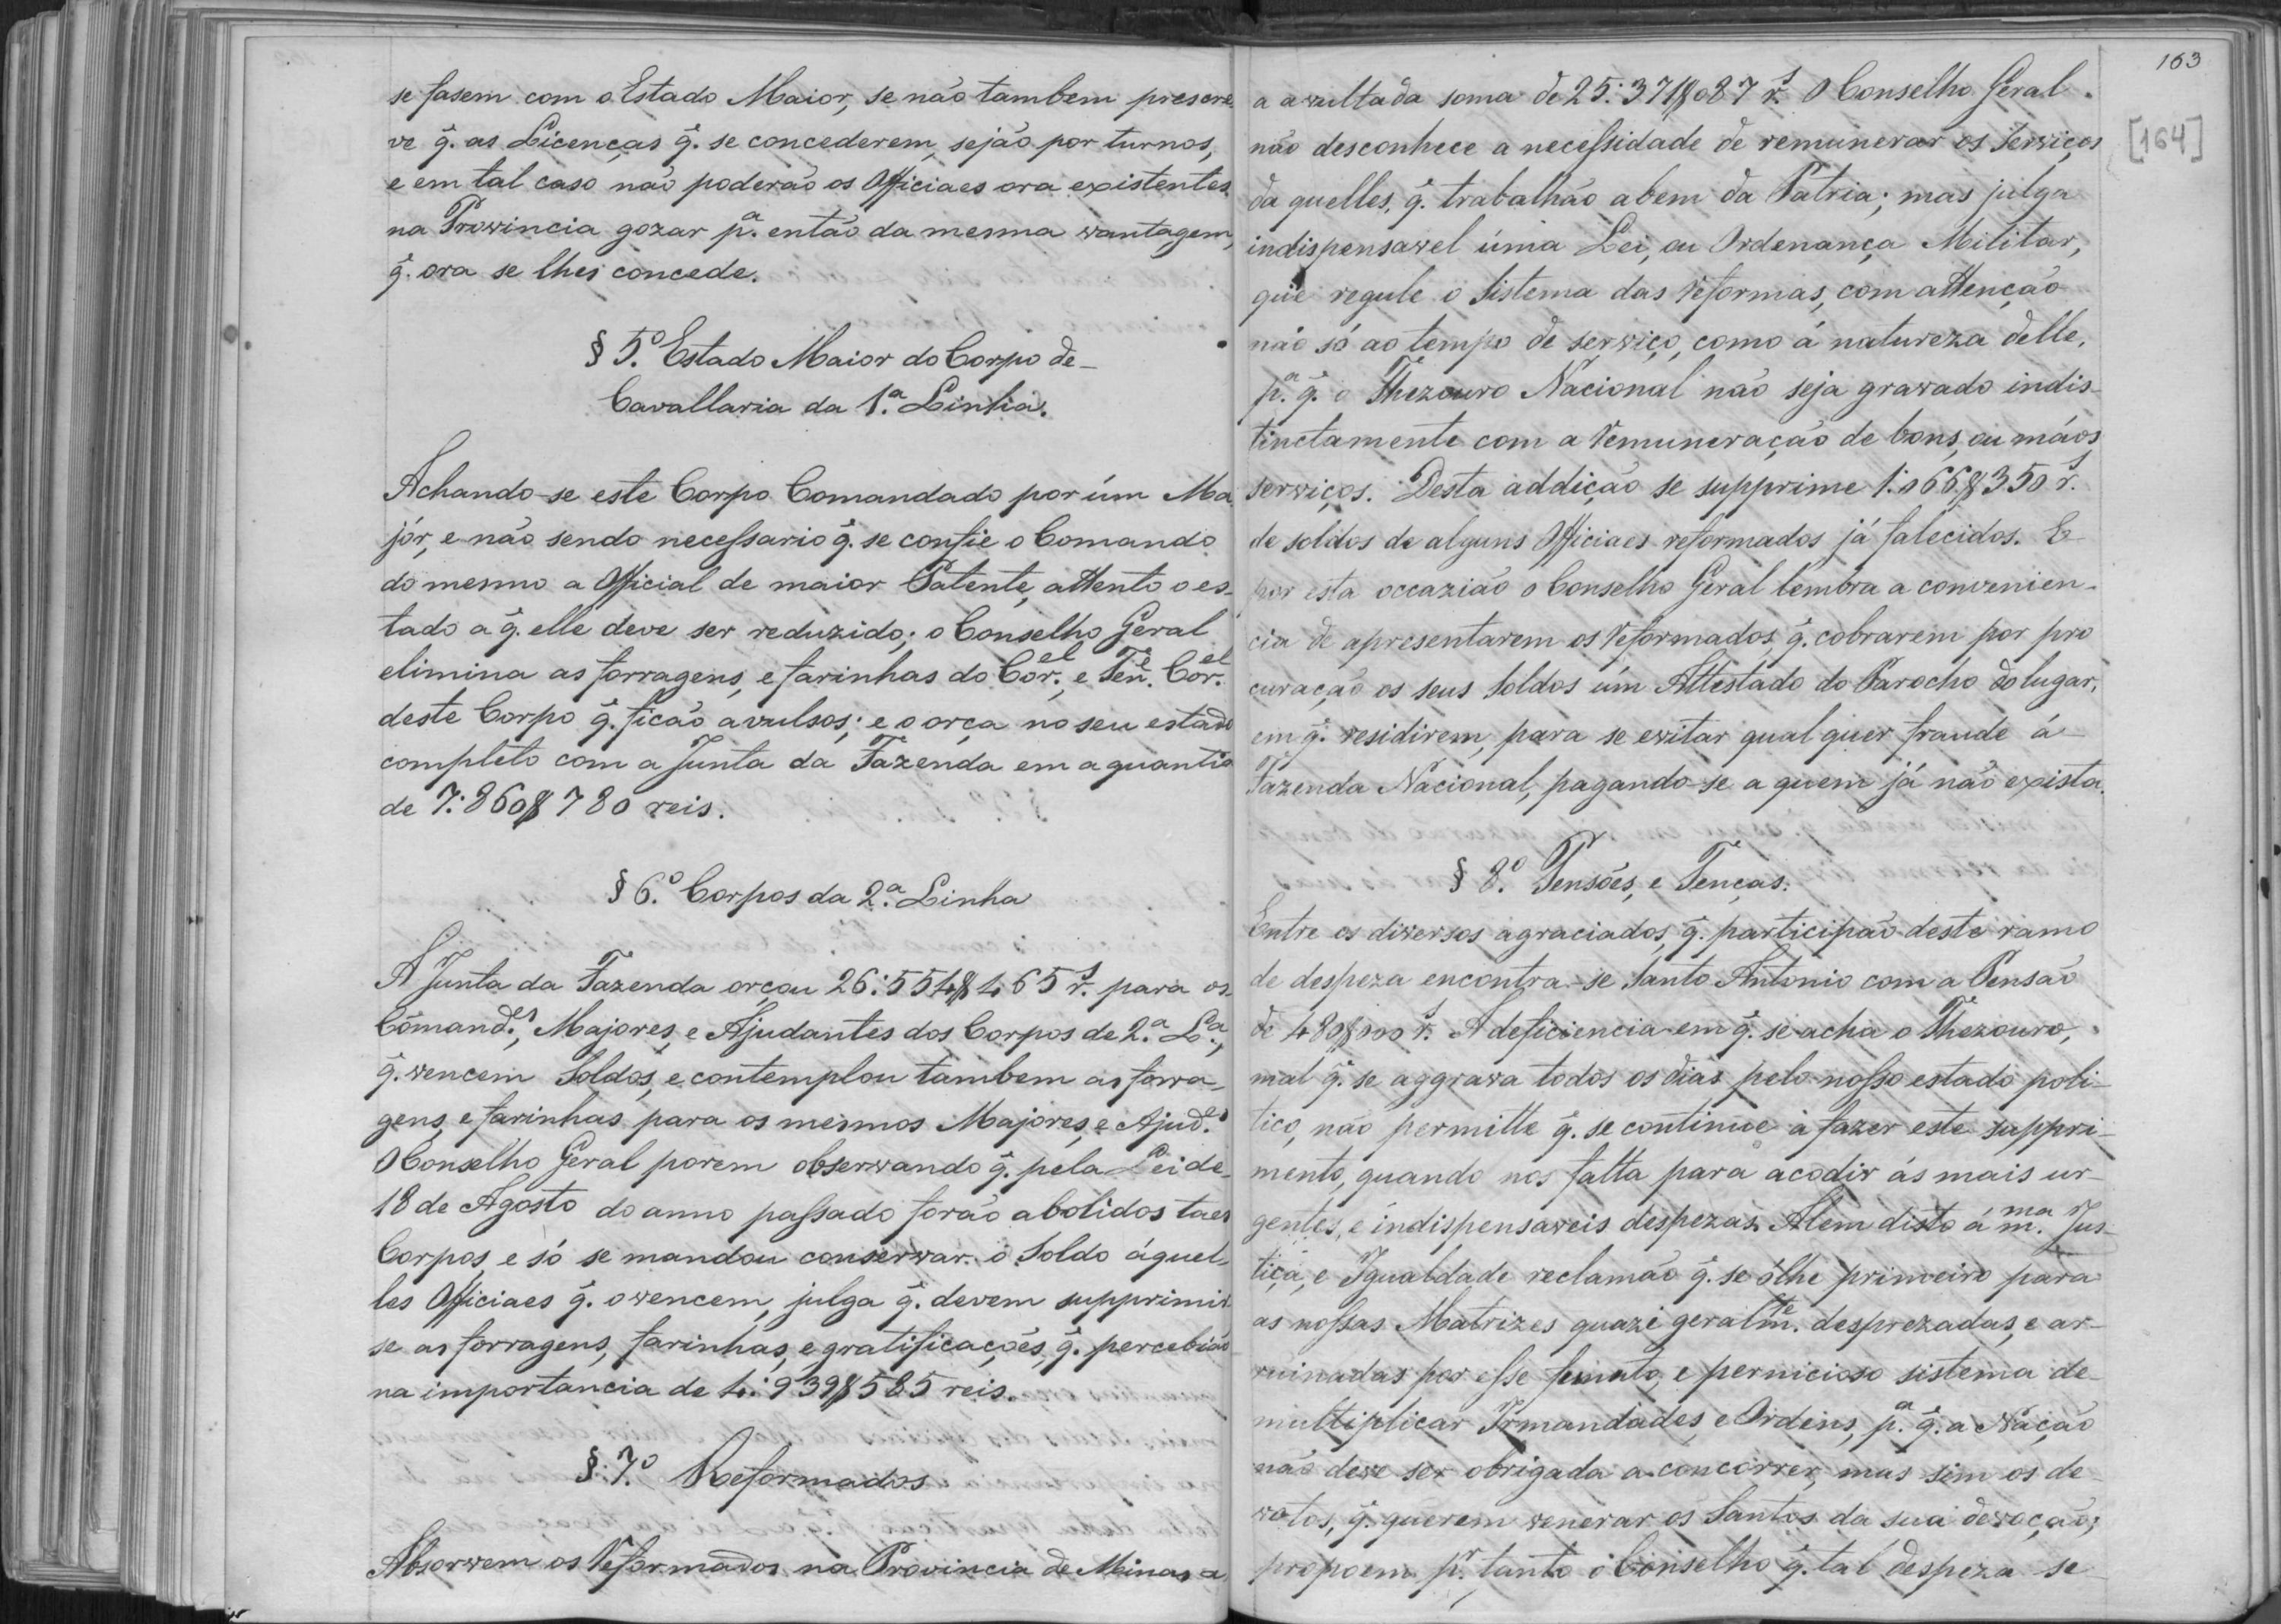 se fasem com o Estado Maior, se não tambem prescre
ve q̃. as Licenças q̃. se concederem, sejão por turnos,
e em tal caso não poderão os Officiaes ora existentes
na Provincia gozar pª. então da mesma vantagem,
q̃. ora se lhes concede.
§ 5º. Estado Maior do Corpo de-
Cavallaria da 1.ª Linha.
Achando-se este Corpo Comandado por úm Ma
jór, e não sendo necessario q̃. se confie o Comando
do mesmo a Official de maior Patente, attento o es-
tado a q̃. elle deve ser reduzido; o Conselho Geral
elimina as forragens, e farinhas do Corel., e Tene. Corel.
deste Corpo q̃. ficão avulsos; e o orça no seu estado
completo com a Junta da Fazenda em a quantia
de 7:860$780 reis.
§ 6º. Corpos da 2.ª Linha
A Junta da Fazenda orçou 26:554$465 rs. para os
Cõmandes., Majores, e Ajudantes dos Corpos de 2.ª Lª.,
q̃. vencem Soldos, e contemplou tambem as forra-
gens, e farinhas para os mesmos Majores, e Ajudes.
O Conselho Geral porem observando q̃. pela Lei de-
18 de Agosto do anno passado forão abolidos taes
Corpos, e só se mandou conservar o Soldo áquel-
les Officiaes q̃. o vencem, julga q̃. devem supprimir
se as forragens, farinhas, e gratificações, q̃. percebião
na importancia de 4:939$585 reis.
§. 7º. Reformados
Absorvem os Reformados na Provincia de Minas a
163
[164]
a avultada soma de 25:371$087 rs. O Conselho Geral
não desconhece a necessidade de remunerar os Serviços
da quelles, q̃. trabalhão a bem da Patria; mas julga
indispensavel úma Lei, ou Ordenança Militar,
que regule o Sistema das Reformas, com attenção
não só ao tempo de serviço, como á natureza delle,
pª. q̃. o Thezouro Nacional não seja gravado indis-
tinctamente com a Remuneração de bons, ou máos
serviços. Desta addição se supprime 1:066$350 rs.
de soldos de alguns Officiaes reformados já falecidos. E
por esta occazião o Conselho Geral lembra a convenien-
cia de apresentarem os Reformados, q̃. cobrarem por pro
curação os seus Soldos úm Attestado do Parocho do lugar,
em q̃. residirem, para se evitar qual quer fraude á
Fazenda Nacional, pagando-se a quem já não exista.
§ 8º. Pensões, e Tenças.
Entre os diversos agraciados, q̃. participão deste ramo
de despeza encontra-se Santo Antonio com a Pensão
de 480$000 rs. A deficiencia em q̃. se acha o Thezouro,
mal q̃. se aggrava todos os dias pelo nosso estado poli-
tico, não permitte q̃. se continue à fazer este suppri-
mento, quando nos falta para acodir ás mais ur-
gentes, e indispensaveis despezas. Alem disto á mma. Jus-
tiça, e Igualdade reclamão q̃. se ólhe primeiro para
as nossas Matrizes quaze geralmte. desprezadas, e ar-
ruinadas por esse e pernicioso sistema de
multiplicar Irmandades, e Ordens, pª. q̃. a Nação
não deve ser obrigada a concorrer, mas sim os de-
votos, q̃. querem venerar os Santos da sua devoção;
propoem pr. tanto o Conselho q̃. tal despeza se